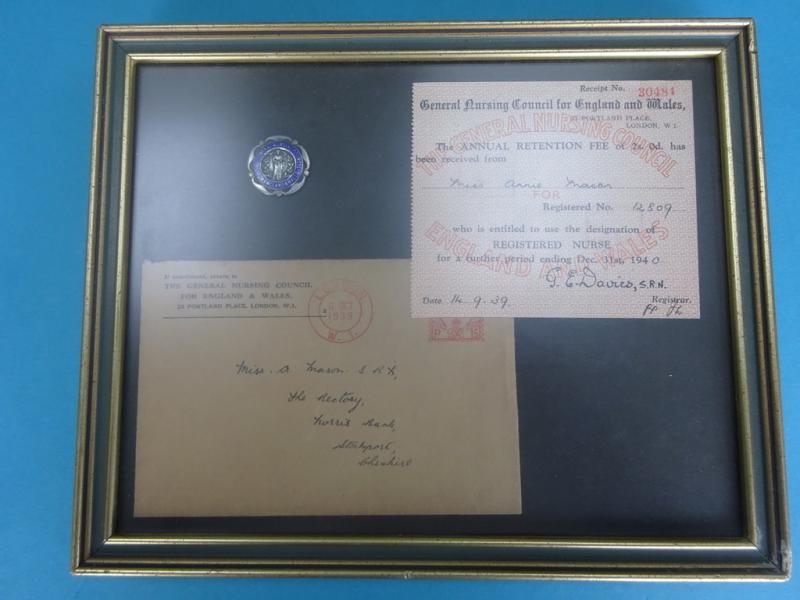 Receipt No. 30484
General Nursing Council for England and Wales,
23 PORTLAND PLACE,
LONDON, W.1.
THE GENERAL NURSING COUNCIL
FOR
ENGLAND AND WALES
The ANNUAL RETENTION FEE of 2s. 0d. has
been received from
Miss Annie Mason
Registered No. 12809
who is entitled to use the designation of
REGISTERED NURSE
for a further period ending Dec. 31st, 1940
G. E. Davies, S.R.N.
Date 14.9.39 Registrar.
pp
If undelivered, return to
THE GENERAL NURSING COUNCIL
FOR ENGLAND & WALES,
23 PORTLAND PLACE, LONDON, W.1.
LONDON
OCT
1939
W.1.
Miss. A. Mason. S R N,
The Rectory,
Norris Bank,
Stockport,
Cheshire